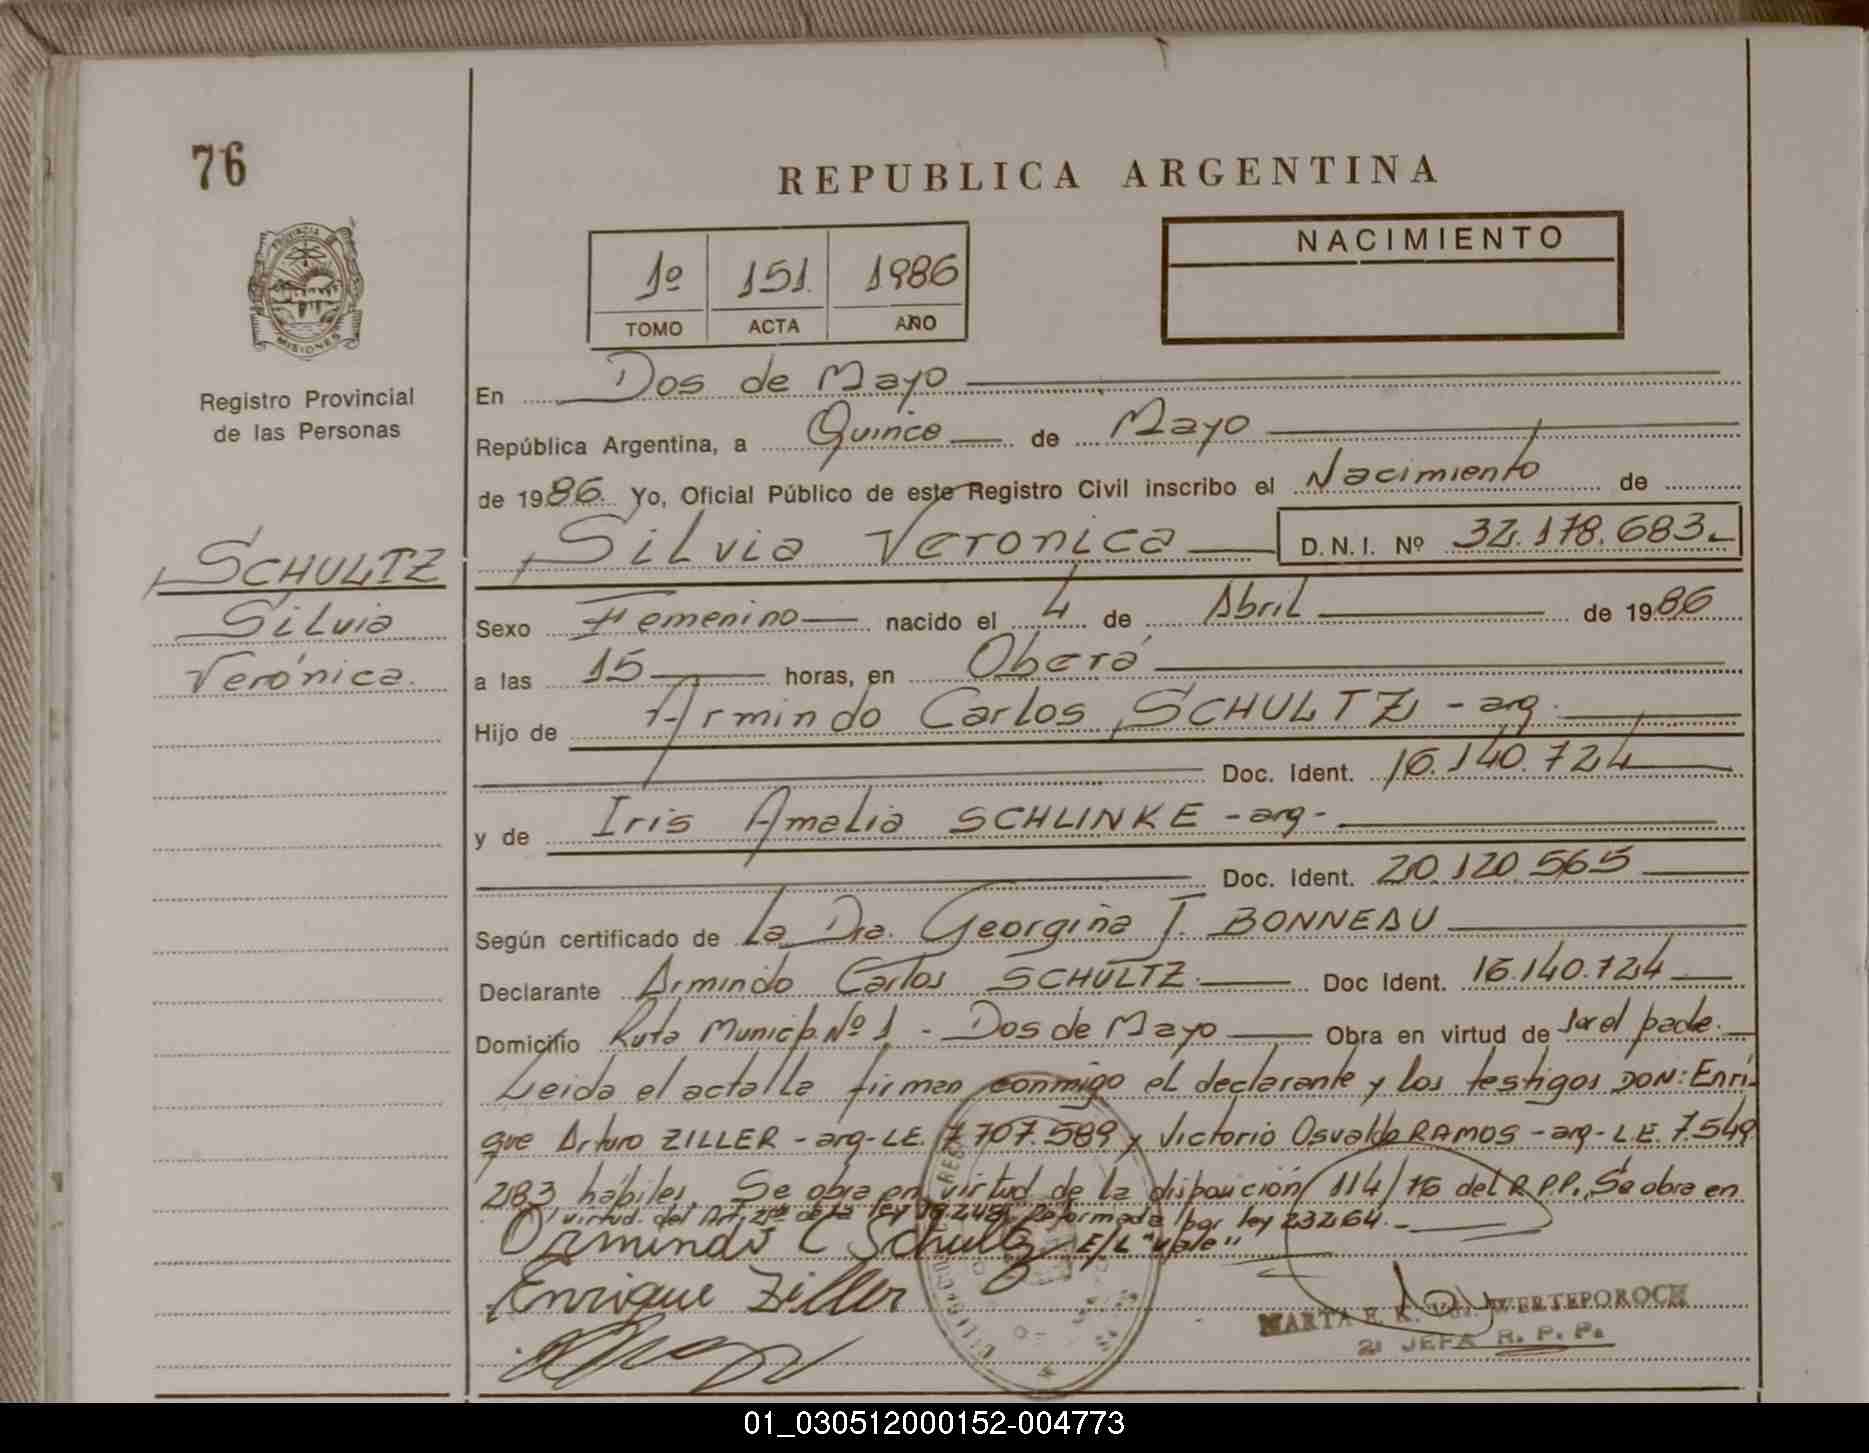 76
REPUBLICA ARGENTINA
PROVINCIA DE
MISIONES
1º 151 1986
TOMO ACTA AÑO
NACIMIENTO
Registro Provincial
de las Personas
SCHULTZ
Silvia
Verónica.
En Dos de Mayo
República Argentina, a Quince de Mayo
de 1986. Yo, Oficial Público de este Registro Civil inscribo el Nacimiento de
Silvia Veronica D.N.I. Nº 32.178.683.-
Sexo Femenino nacido el 4 de Abril de 1986
a las 15 horas, en Oberá
Hijo de Armindo Carlos SCHULTZ - arg.
Doc. Ident. 16.140.724
y de Iris Amalia SCHLINKE - arg -
Doc. Ident. 20.120.565
Según certificado de la Dra. Georgina J. BONNEAU
Declarante Armindo Carlos SCHULTZ Doc Ident. 16.140.724
Domicilio Ruta Municip. Nº 1 - Dos de Mayo Obra en virtud de ser el padre.
Leida el acta la firman conmigo el declarante y los testigos DON: Enri-
que Arturo ZILLER - arg - L.E. 7.707.589 y Victorio Osvaldo RAMOS - arg - L.E. 7.549
283 habiles. Se obra en virtud de la disposición 114/76 del R.P.P., Se obra en
virtud del Art. de la ley 18.248 Reformada por ley 23264. -
Armindo C Schultz E/L "vale"
Enrique Ziller
MARTA E. K. Vda. WERTEPOROCH
2ª JEFA R. P. P.
01_030512000152-004773